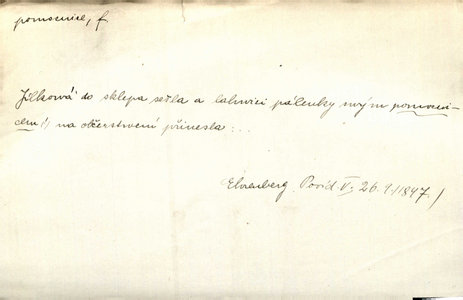 pomocnice, f.
Jílková do sklepa sešla a lahvici pálenky svým pomocni-
cím (!) na občerstvení přinesla...
Ehrenberg. Povíd. V, 26. (1847.)